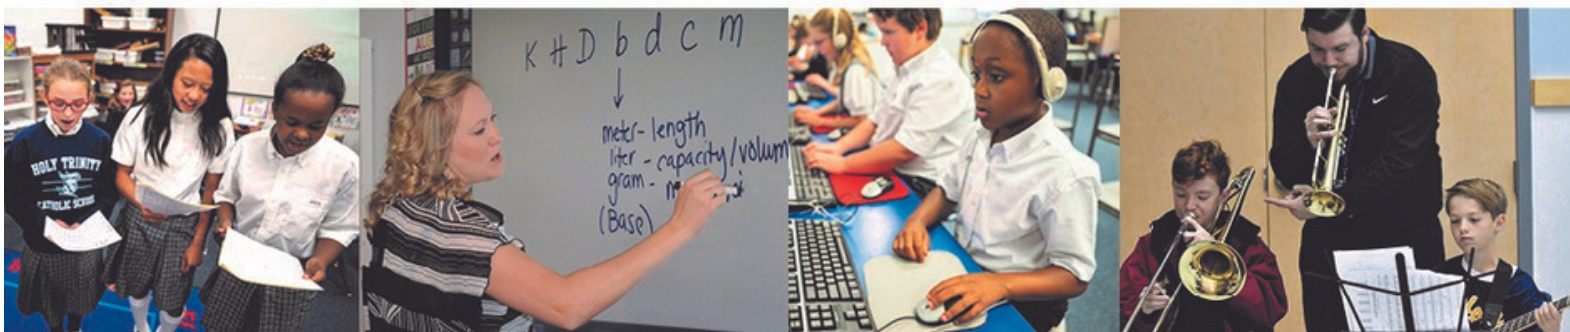 HOLY TRINITY
CATHOLIC SCHOOL
K H D b d c m
meter - length
liter - capacity/volum
gram -
(Base)